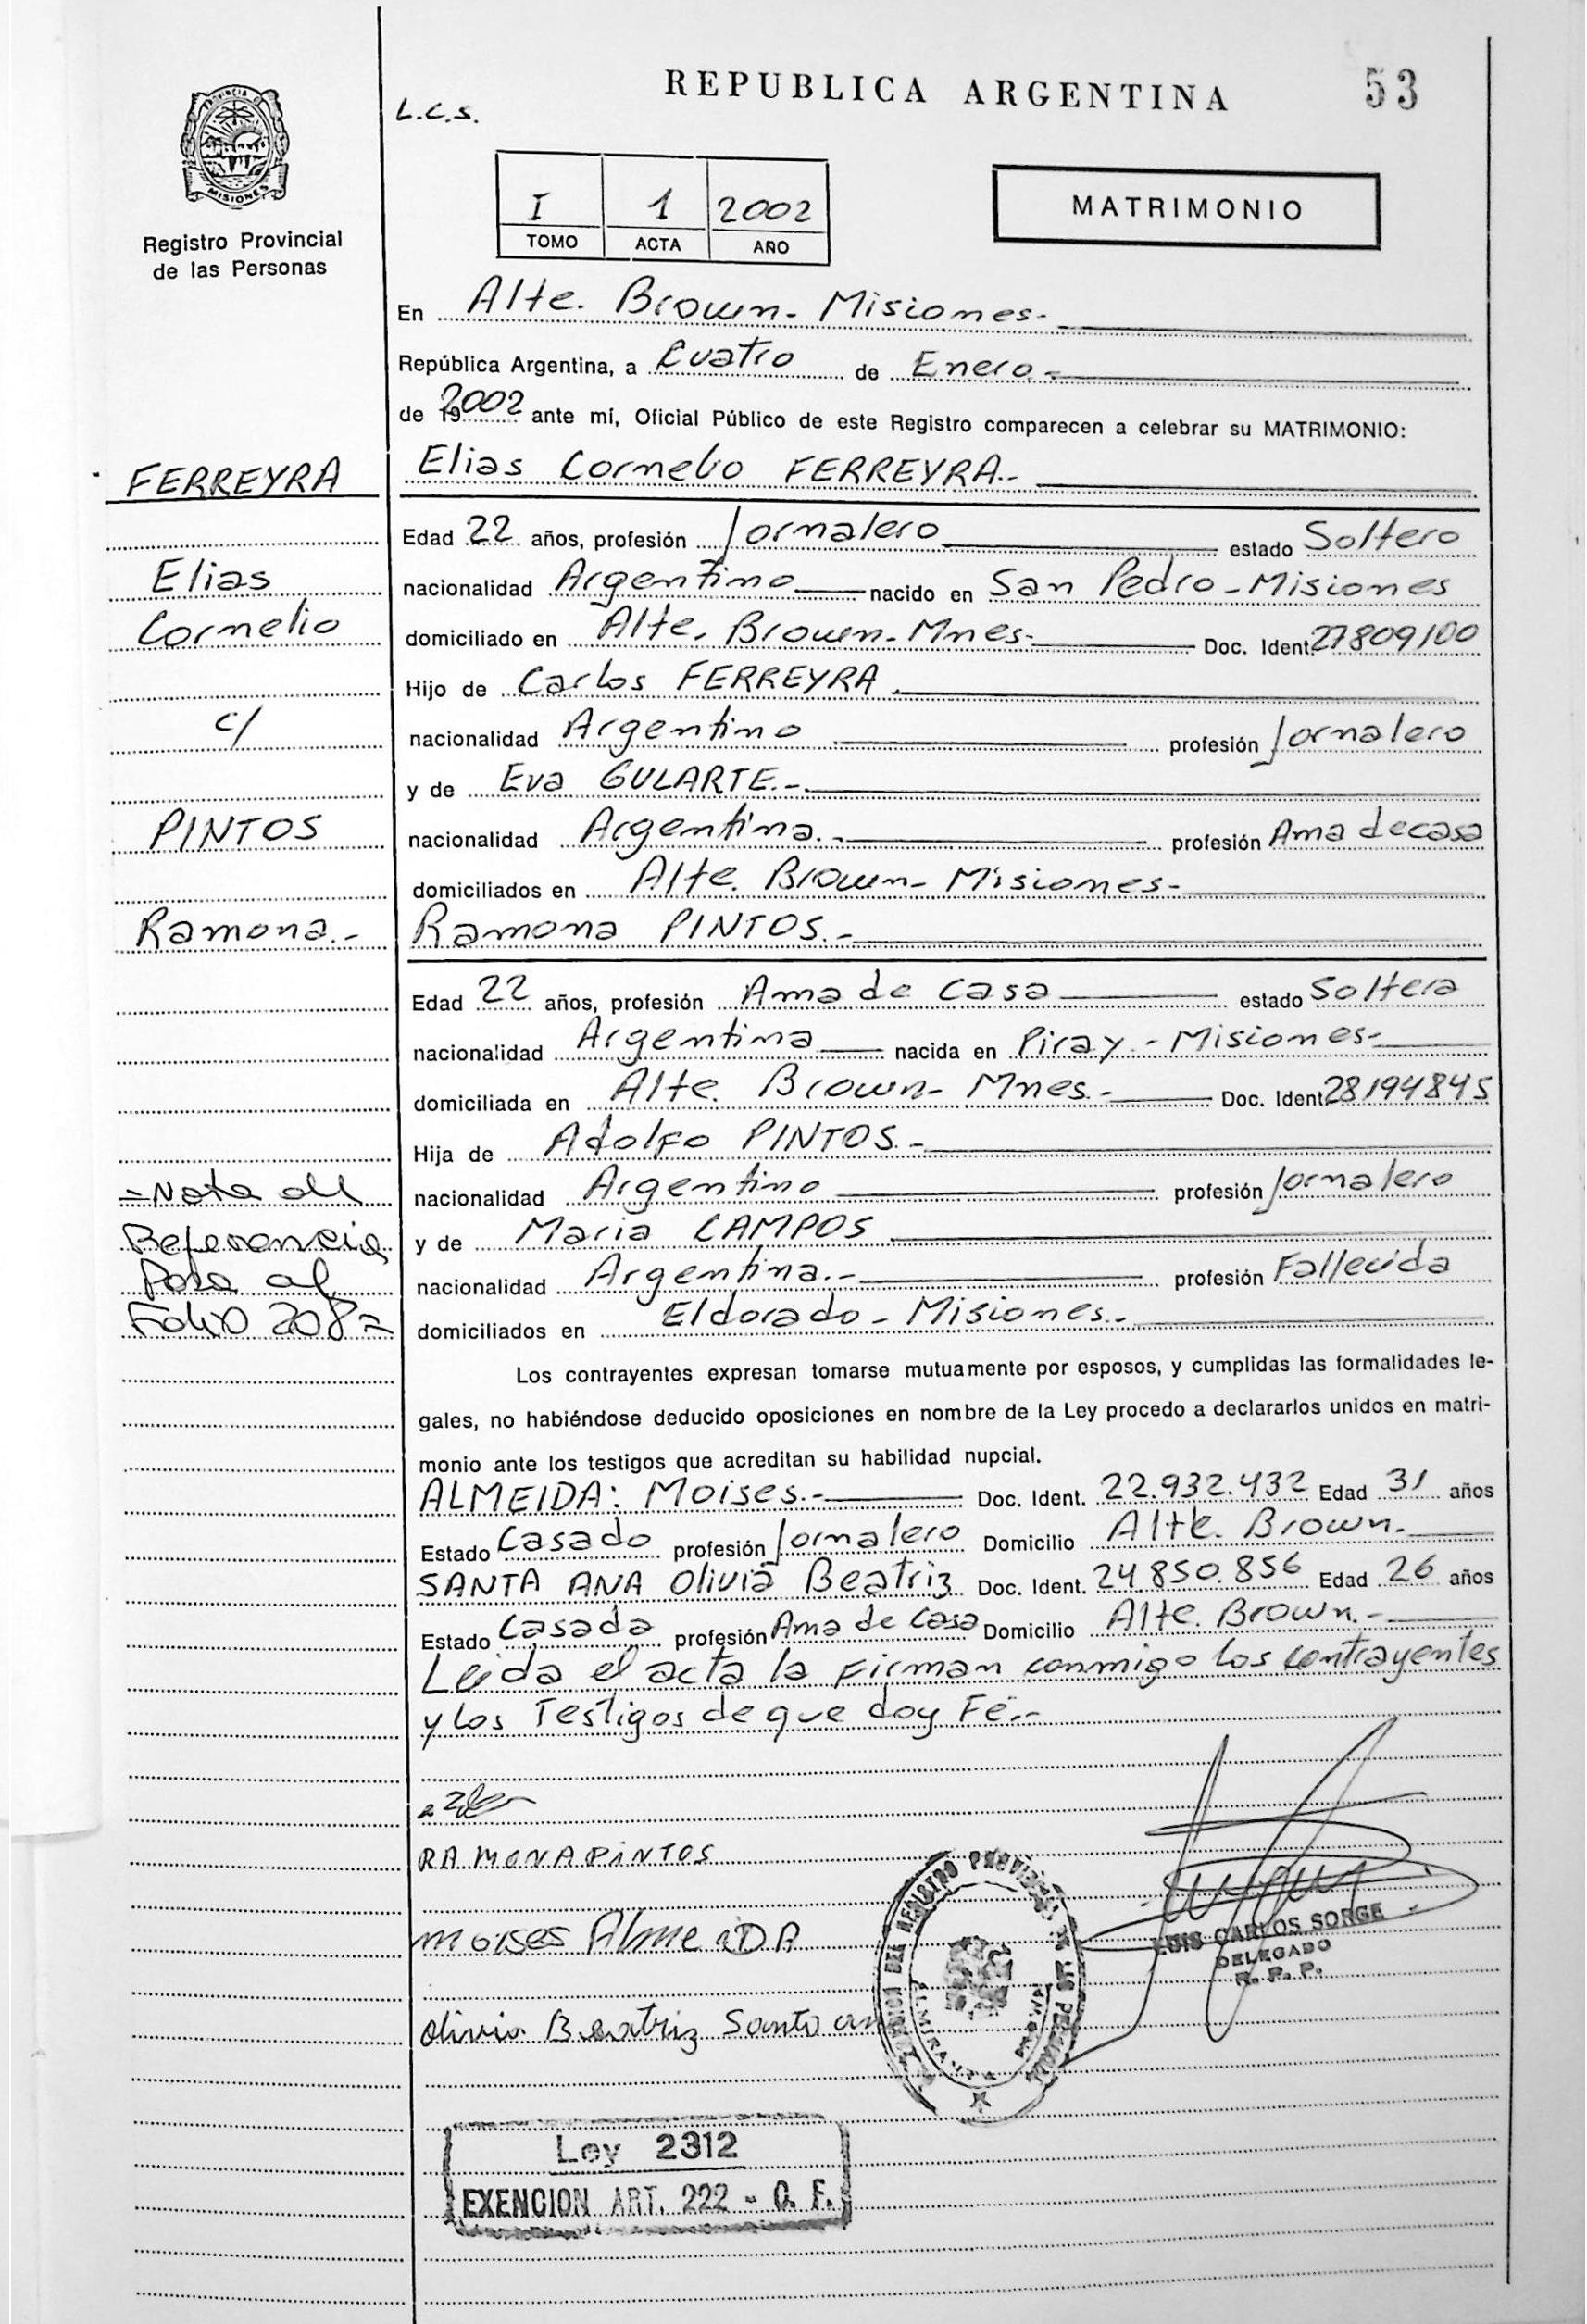 REPUBLICA ARGENTINA
53
L.C.S.
PROVINCIA DE
MISIONES
Registro Provincial
de las Personas
I 1 2002
TOMO ACTA AÑO
MATRIMONIO
En Alte. Brown - Misiones -
República Argentina, a Cuatro de Enero -
de 2002 ante mí, Oficial Público de este Registro comparecen a celebrar su MATRIMONIO:
FERREYRA
Elias Cornelio FERREYRA.-
Edad 22 años, profesión Jornalero estado Soltero
Elias
nacionalidad Argentino nacido en San Pedro - Misiones
Cornelio
domiciliado en Alte. Brown - Mnes. - Doc. Ident. 27809100
Hijo de Carlos FERREYRA
c/
nacionalidad Argentino profesión Jornalero
y de Eva GULARTE.-
PINTOS
nacionalidad Argentina.- profesión Ama de casa
domiciliados en Alte. Brown - Misiones -
Ramona.-
Ramona PINTOS.-
Edad 22 años, profesión Ama de Casa estado Soltera
nacionalidad Argentina nacida en Piray - Misiones -
domiciliada en Alte. Brown - Mnes. - Doc. Ident. 28194845
Hija de Adolfo PINTOS.-
=Nota de
nacionalidad Argentino profesión Jornalero
Referencia
y de Maria CAMPOS
Pasa al
nacionalidad Argentina.- profesión Fallecida
Folio 208
domiciliados en Eldorado - Misiones.-
Los contrayentes expresan tomarse mutuamente por esposos, y cumplidas las formalidades le-
gales, no habiéndose deducido oposiciones en nombre de la Ley procedo a declararlos unidos en matri-
monio ante los testigos que acreditan su habilidad nupcial.
ALMEIDA: Moises.- Doc. Ident. 22.932.432 Edad 31 años
Estado Casado profesión Jornalero Domicilio Alte. Brown.
SANTA ANA Olivia Beatriz Doc. Ident. 24.850.856 Edad 26 años
Estado Casada profesión Ama de Casa Domicilio Alte. Brown.-
Leida el acta la Firman conmigo los contrayentes
y los Testigos de que doy Fé.-
RAMONA PINTOS
moises AlmeiDA
LUIS CARLOS SORGE
DELEGADO
R. P. P.
olivia Beatriz Santa an
Ley 2312
EXENCION ART. 222 - C. F.